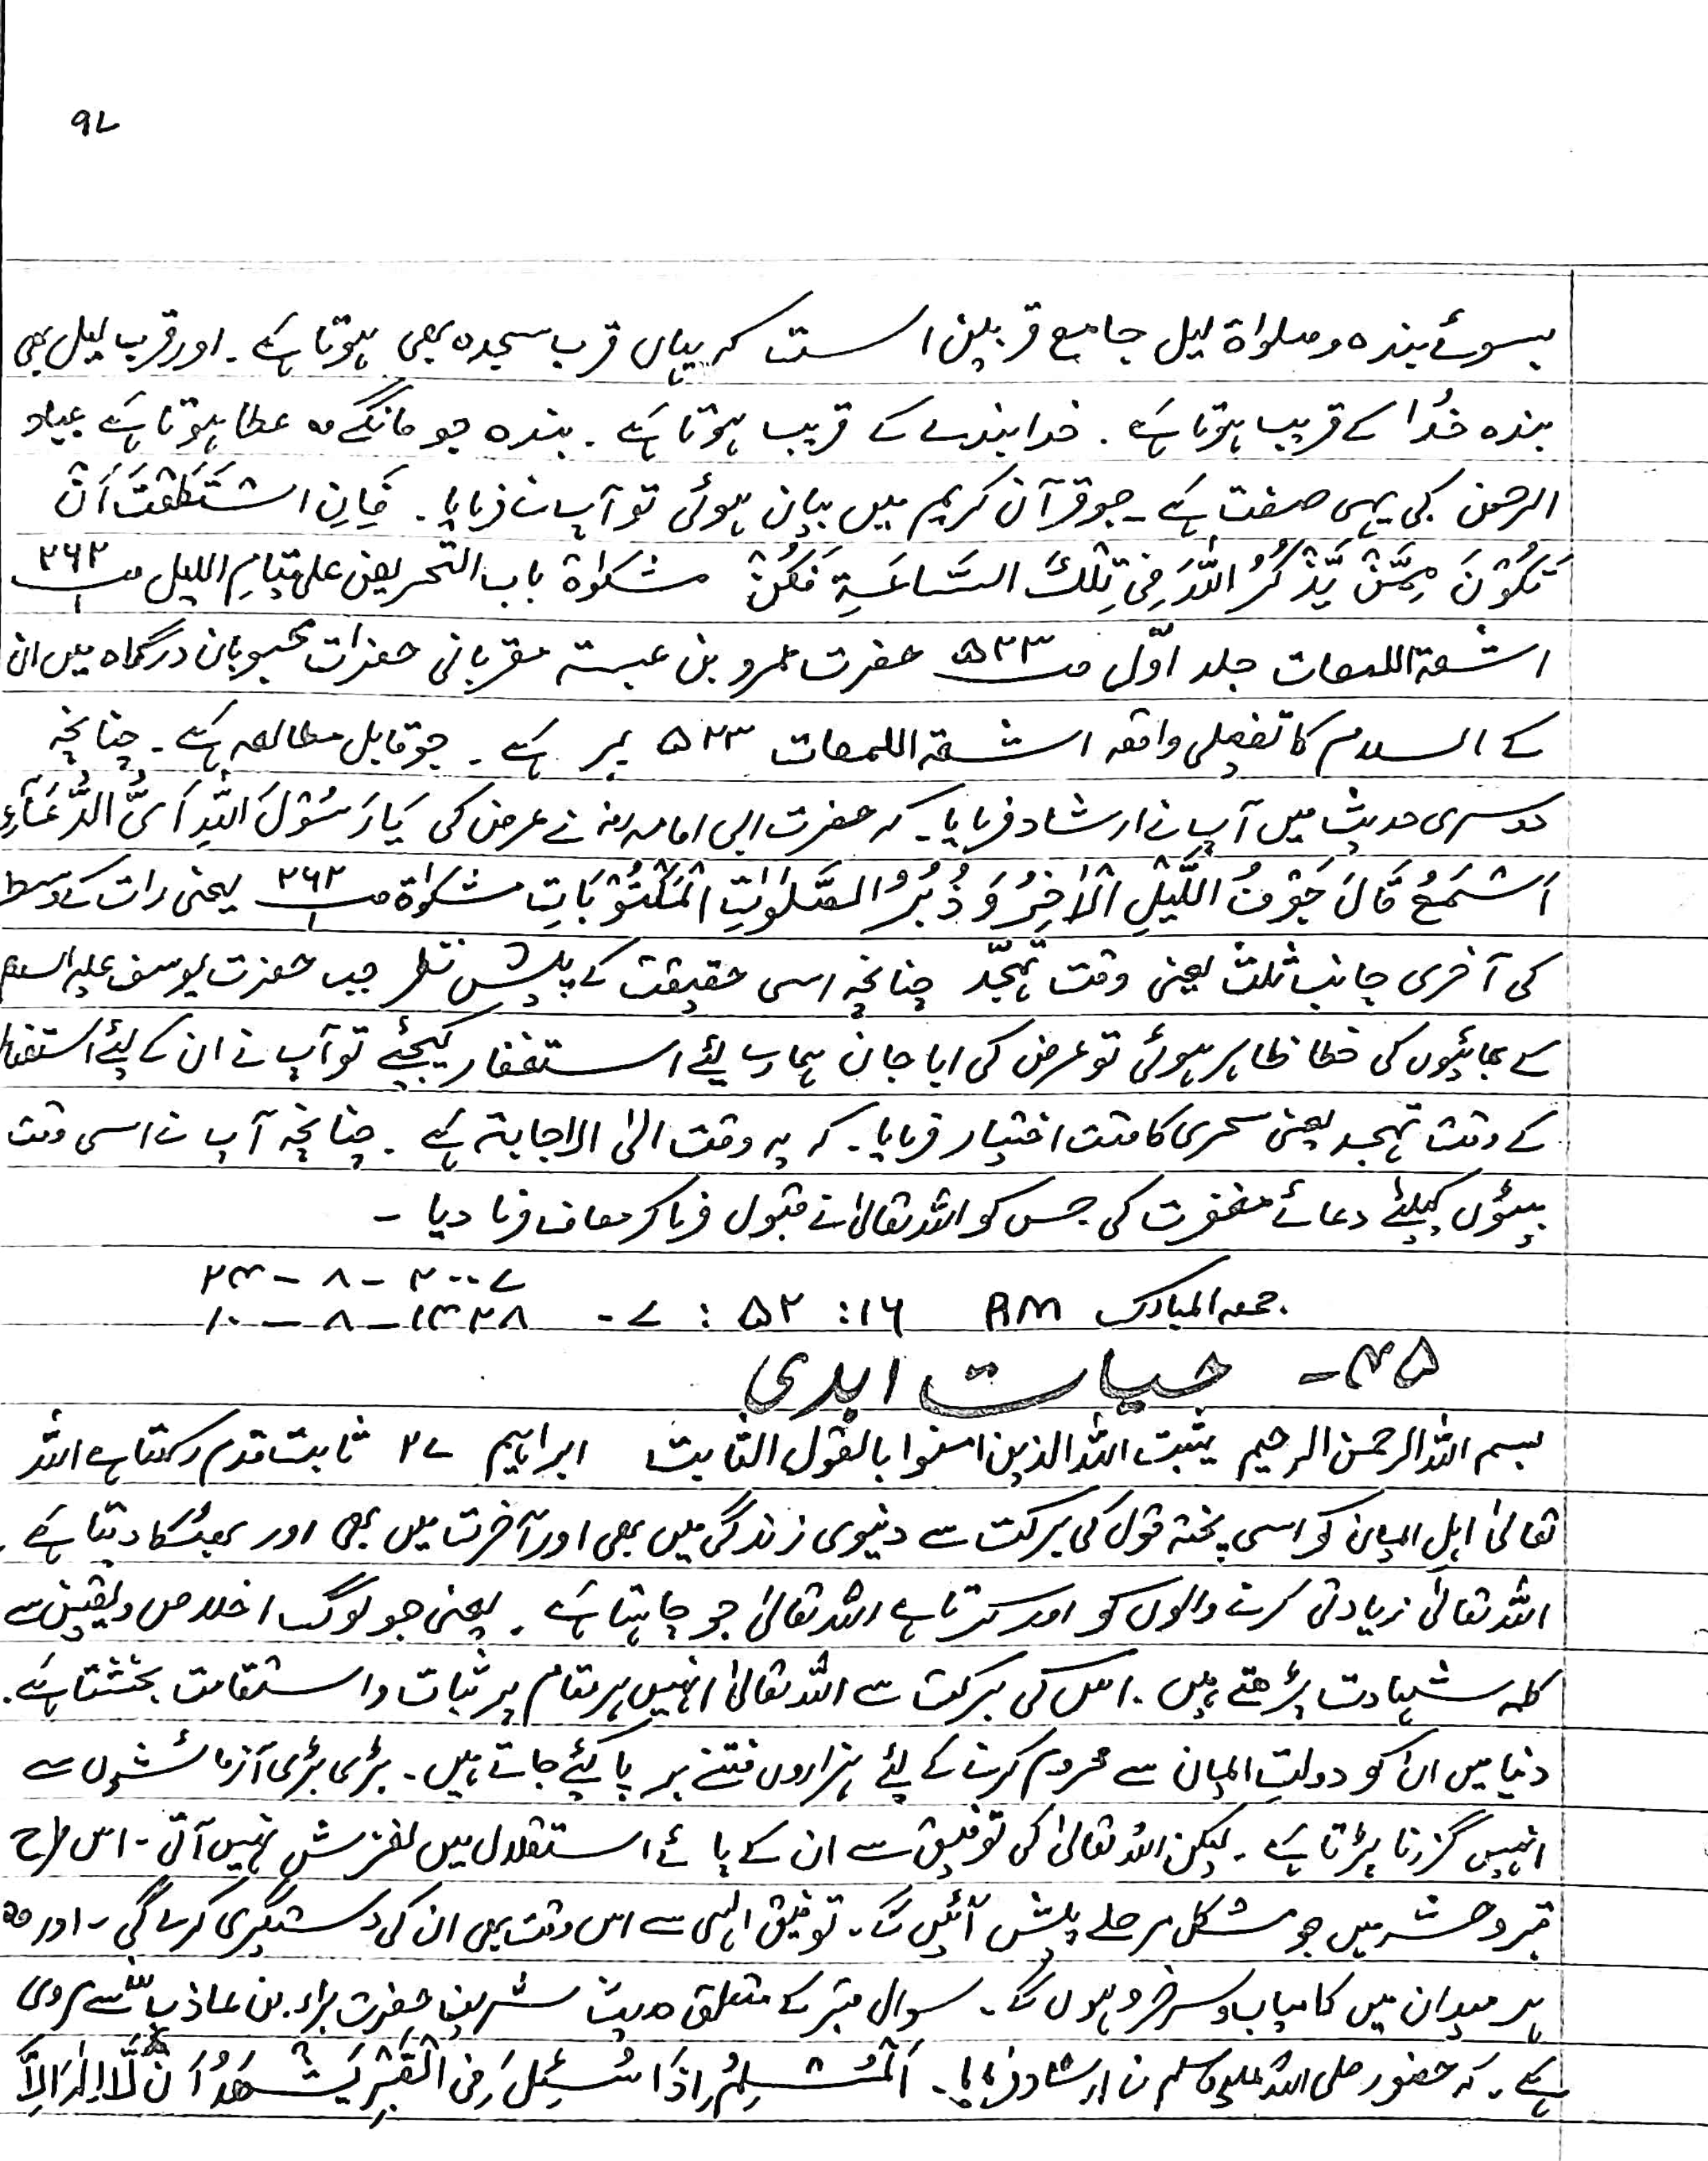 ۹۷
بسوئے بندہ و صلواۃ لیل جامع قربین است کہ یہاں قرب سجدہ بھی ہوتا ہے۔ اور قرب لیل بھی
بندہ خُدا کے قریب ہوتا ہے۔ خدا بندے کے قریب ہوتا ہے۔ بندہ جو مانگے وہ عطا ہوتا ہے عباد
الرحمن کی یہی صفت ہے۔ جو قرآن کریم میں بیان ہوئی تو آپ نے فرمایا۔ فَاِنِ اسْتَطَعْتَ اَنْ
تَکُوْنَ مِمَّنْ یَّذْکُرُ اللّٰہَ فِیْ تِلْکَ السَّاعَۃِ فَکُنْ مشکوٰۃ باب التحریض علی قیامِ اللیل صـ ۲۶۲/۱
اشعۃ اللمعات جلد اوّل صـ ۵۲۳ حضرت عمرو بن عبسۃ حضرات محبوبان درگاہ میں ان
کے السلام کا تفصیلی واقعہ اشعۃ اللمعات ۵۲۳ پر ہے۔ جو قابل مطالعہ ہے۔ چنانچہ
دوسری حدیث میں آپ نے ارشاد فرمایا۔ کہ حضرت ابی امامہ رضہ نے عرض کی یَا رَسُوْلَ اللّٰہِ اَیُّ الدُّعَآءِ
اَسْمَعُ قَالَ جَوْفُ اللَّیْلِ الْاٰخِرُ وَ دُبُرُ الصَّلَوٰتِ الْمَکْتُوْبَاتِ مشکوٰۃ صـ ۲۶۲/۱ یعنی رات کے وسط
کی آخری جانب ثلث یعنی وقت تہجّد چنانچہ اسی حقیقت کے پیش نظر جب حضرت یوسف علیہ السلام
کے بھائیوں کی خطا ظاہر ہوئی تو عرض کی ابا جان ہمارے لیئے استغفار کیجئیے تو آپ نے ان کے لیئے استغفار
کے وقت تہجد یعنی سحری کا وقت اختیار فرمایا۔ کہ یہ وقت الیٰ الاجابۃ ہے۔ چنانچہ آپ نے اسی وقت
بیٹوں کیلئے دعائے مغفرت کی جس کو اللہ تعالیٰ نے قبول فرما کر معاف فرما دیا ۔
۲۴-۸-۲۰۰۷
جمعہ المبارک AM ۱۶: ۵۲ : ۷- ۱۰-۸-۱۴۲۸
۴۵- حیات ابدی
بسم اللہ الرحمن الرحیم یثبت اللہ الذین امنوا بالقول الثابت ابراہیم ۲۷ ثابت قدم رکھتا ہے اللہ
تعالیٰ اہلِ ایمان کو اسی پختہ قول کی برکت سے دنیوی زندگی میں بھی اور آخرت میں بھی اور بھٹکا دیتا ہے۔
اللہ تعالیٰ زیادتی کرنے والوں کو اور کرتا ہے اللہ تعالیٰ جو چاہتا ہے۔ یعنی جو لوگ اخلاص و یقین سے
کلمہ شہادت پڑھتے ہیں۔ اس کی برکت سے اللہ تعالیٰ انہیں ہر مقام پر ثبات و استقامت بخشتا ہے۔
دنیا میں ان کو دولتِ ایمان سے محروم کرنے کے لئے ہزاروں فتنے برپا کیئے جاتے ہیں۔ بڑی بڑی آزمائشوں سے
انہیں گزرنا پڑتا ہے۔ لیکن اللہ تعالیٰ کی توفیق سے ان کے پائے استقلال میں لغزش نہیں آتی۔ اس طرح
قبر و حشر میں جو مشکل مرحلے پیش آئیں گے۔ توفیق الہی سے اس وقت بھی ان کی دستگیری کرے گی۔ اور وہ
ہر میدان میں کامیاب و سرخرو ہوں گے۔ سوال قبر کے متعلق حدیث شریف حضرت براء بن عاذب سے مروی
ہے۔ کہ حضور صلی اللہ علیہ وسلم نے ارشاد فرمایا۔ اَلْمُسْلِمُ اِذَا سُئِلَ فِی الْقَبْرِ یَشْھَدُ اَنْ لَّا اِلٰہَ اِلَّا